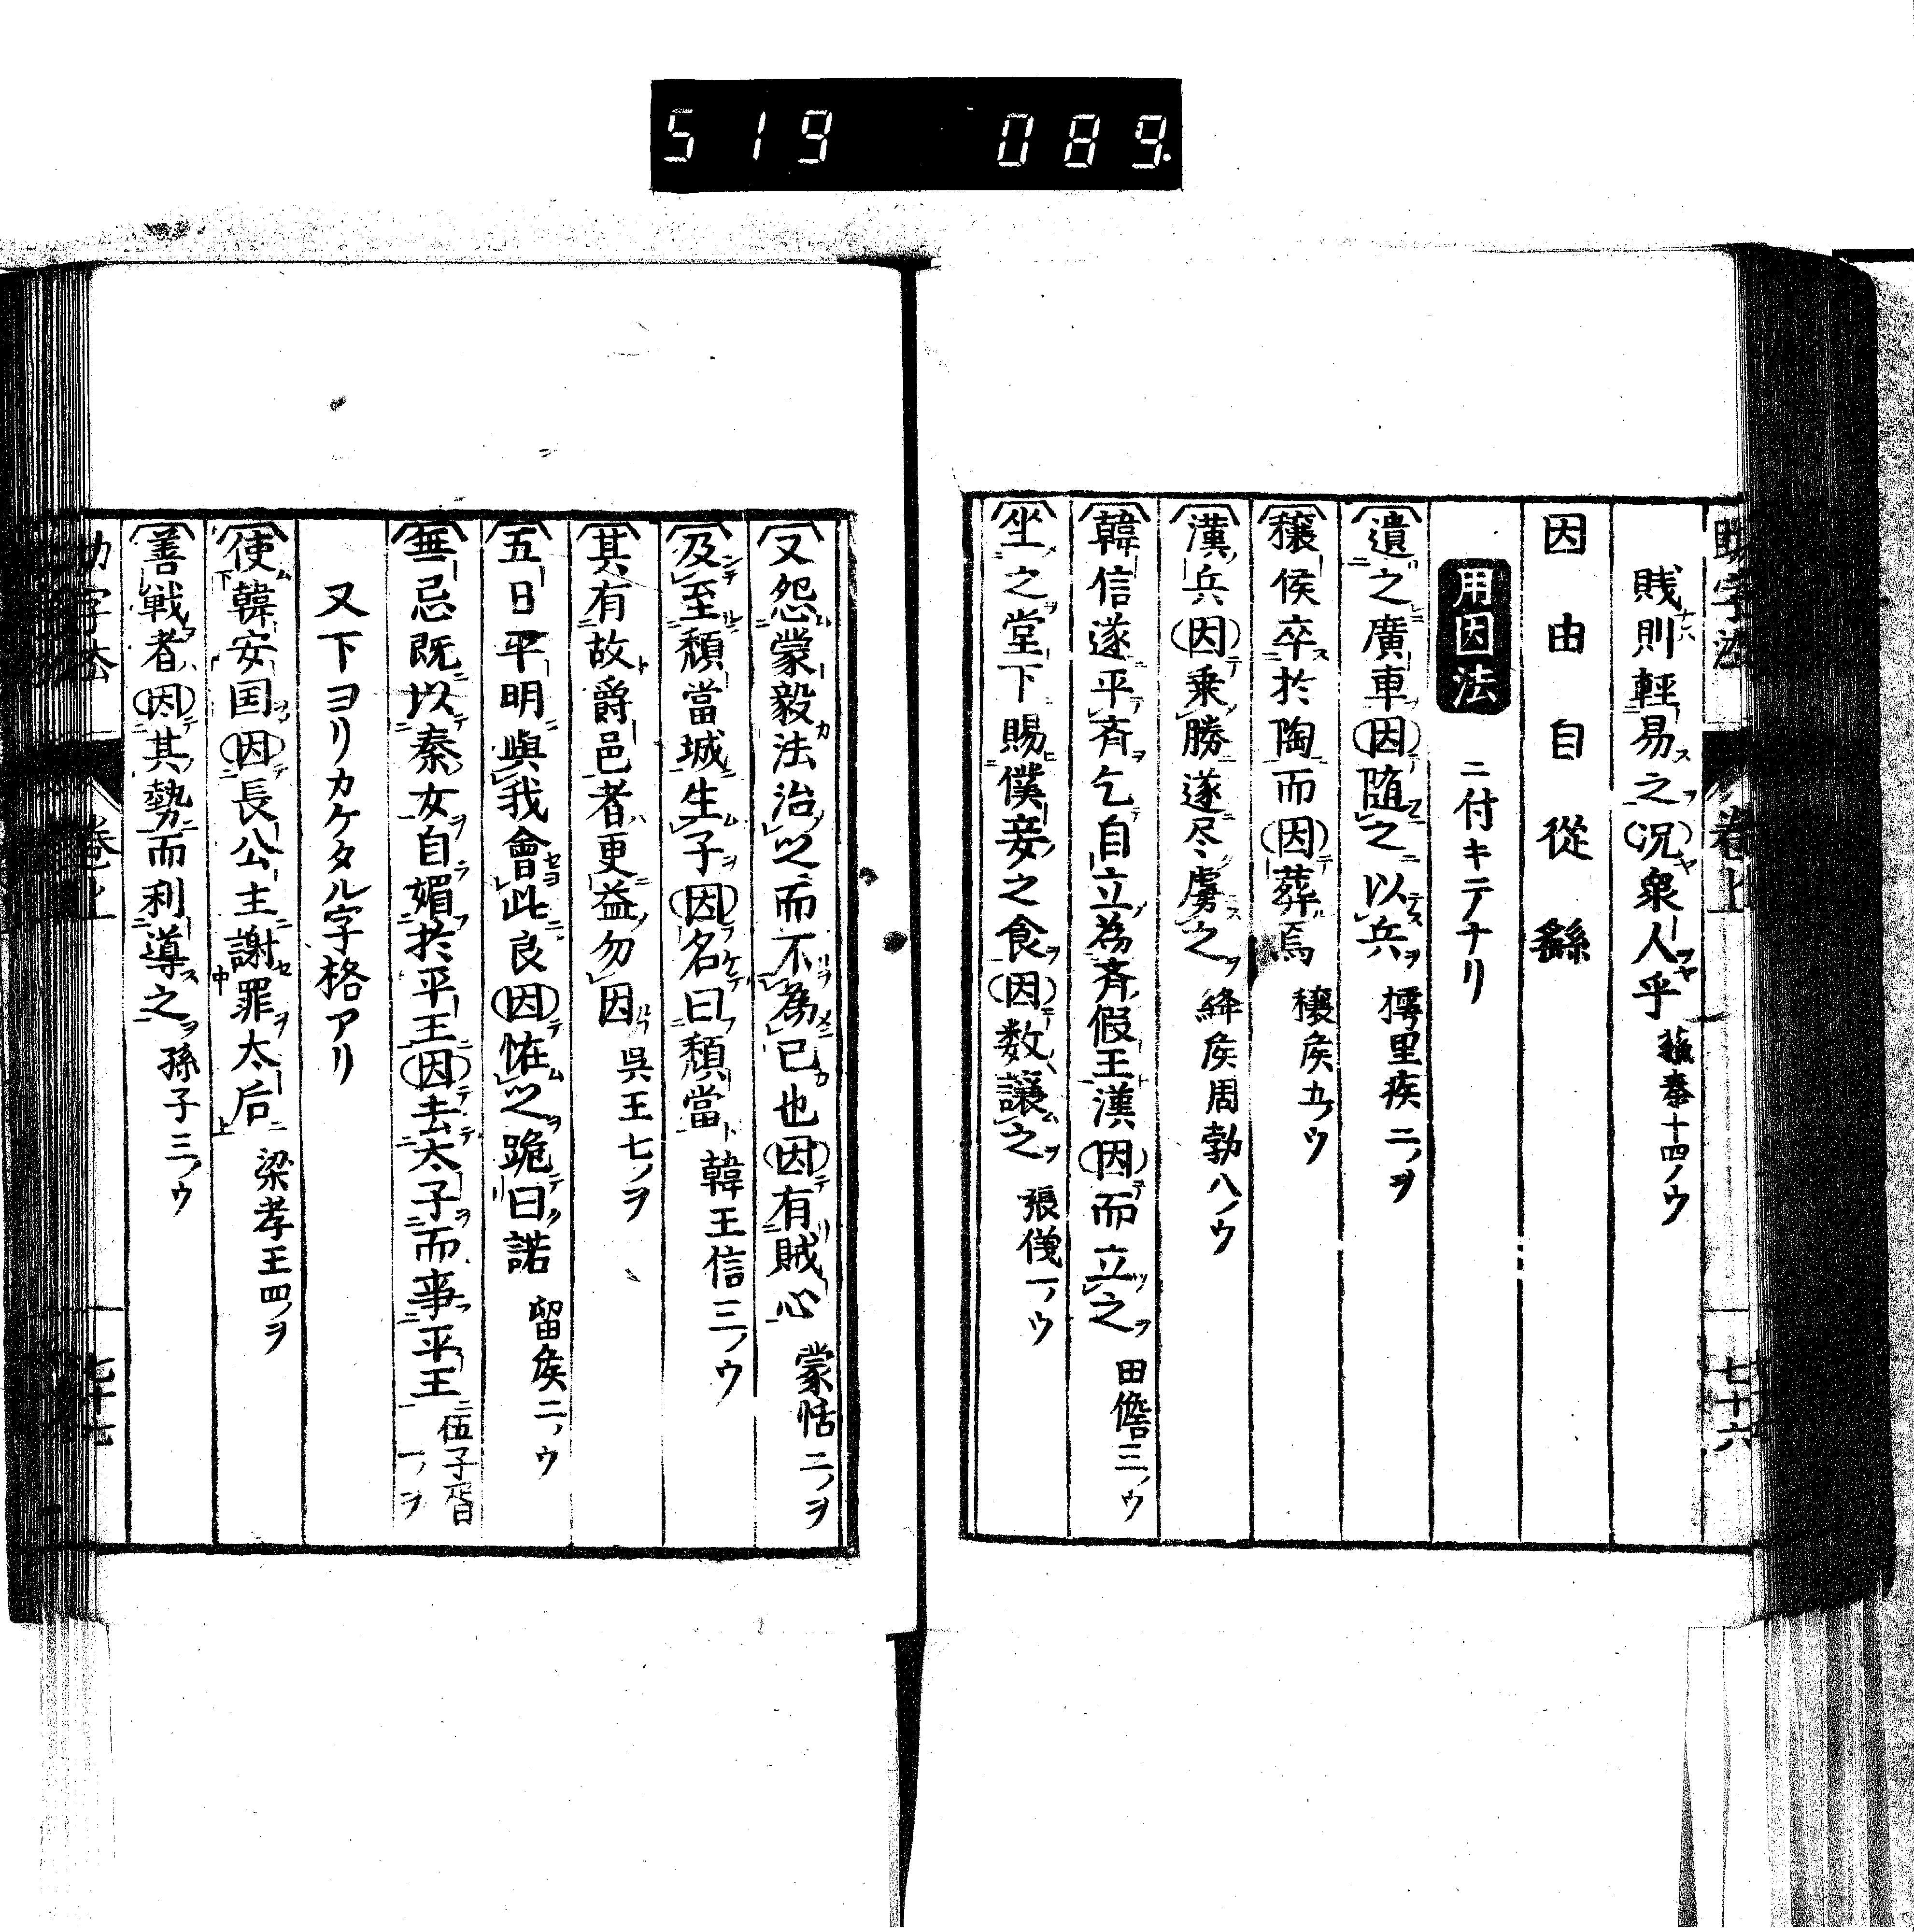 519 089.
助字法 卷上 七十六
賤則輕易之況衆人乎 蘇秦十四ノウ
因由自從繇
用因法 ニ付キテナリ
遺之廣車因随之以兵 樗里疾二ノヲ
穰侯卒於陶而因葬焉 穰侯五ノウ
漢兵因乗勝遂尽虜之 絳侯周勃八ノウ
韓信遂平斉乞自立為斉假王漢因而立之 田儋三ノウ
坐之堂下賜僕妾之食因数譲之 張儀一ノウ
又怨蒙毅法治之而不為己也因有賊心 蒙恬二ノヲ
及至頽當城生子因名曰頽當 韓王信三ノウ
其有故爵邑者更益勿因 呉王七ノヲ
五日平明與我會此良因恠之跪曰諾 留侯二ノウ
無忌既以秦女自媚於平王因去太子而事平王 伍子胥一ノヲ
又下ヨリカケタル字格アリ
使韓安国因長公主謝罪太后 梁孝王四ノヲ
善戦者因其勢而利導之 孫子三ノウ
助字法 卷上 七十七